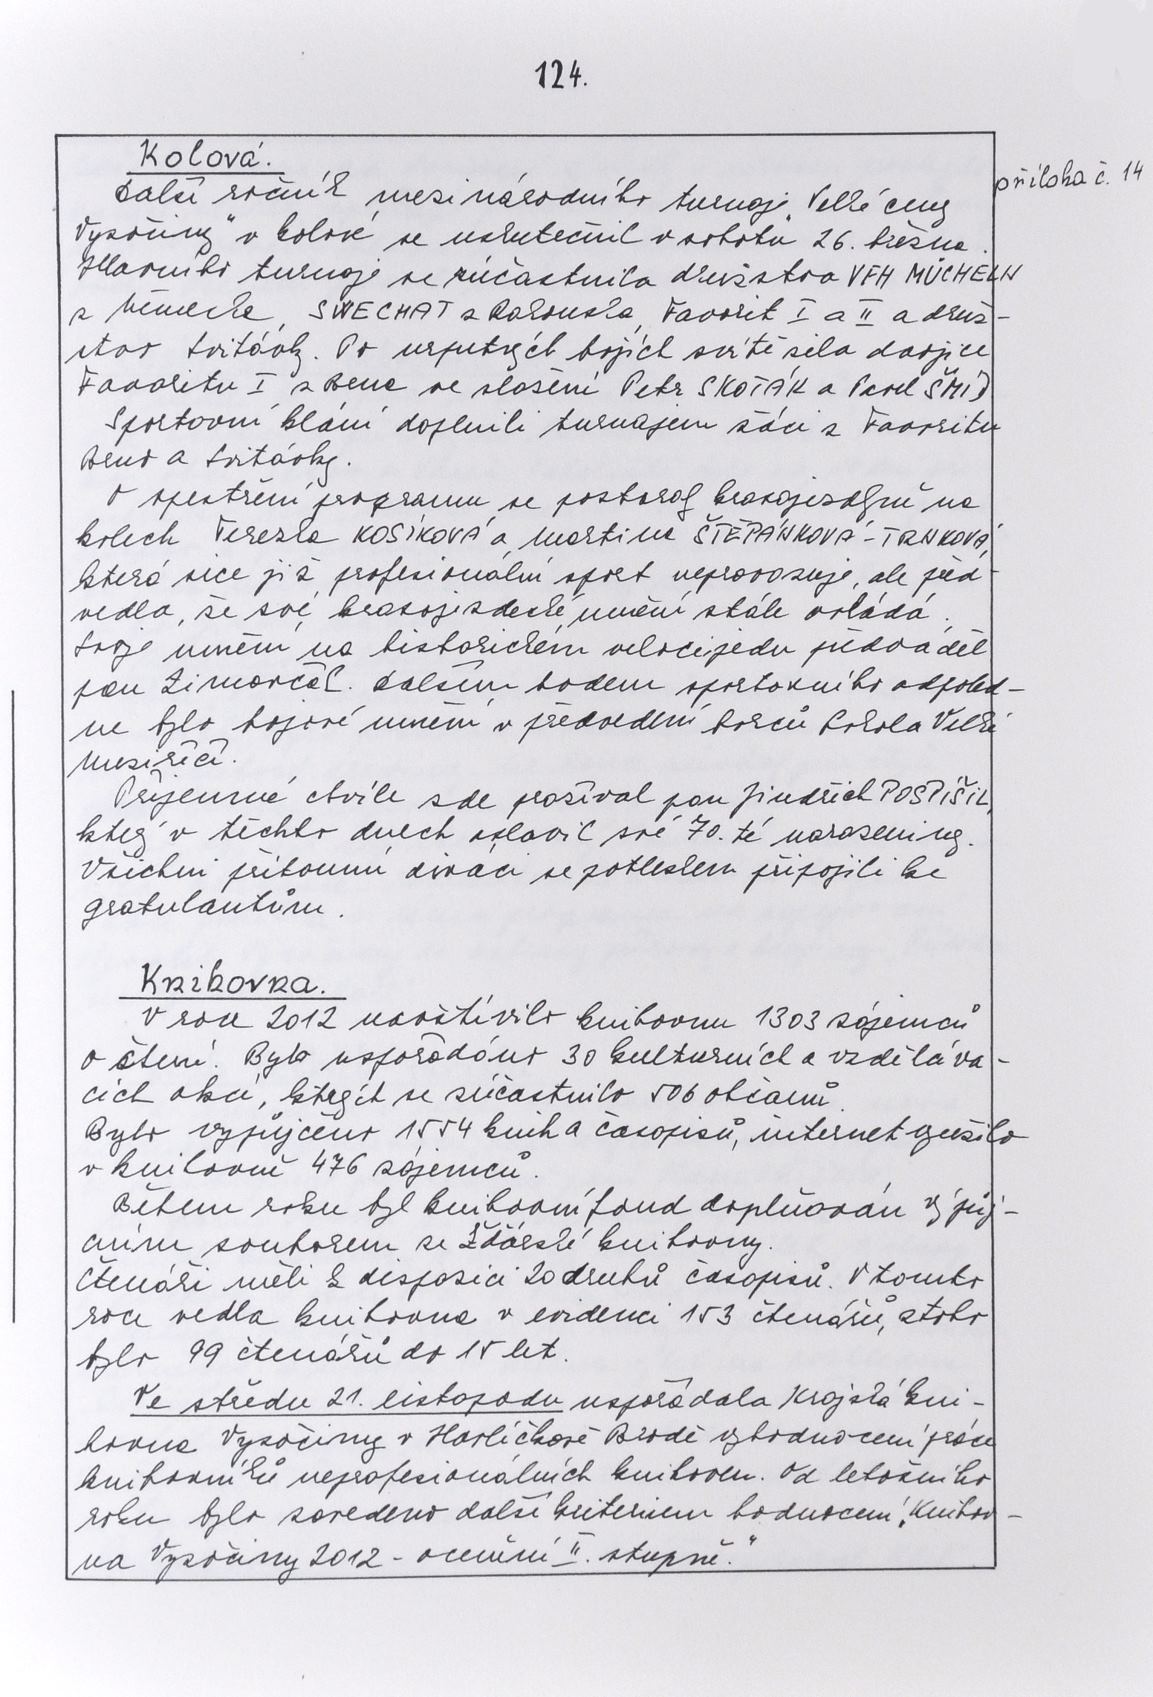 124.
Kolová.
příloha č. 14
Další ročník mezinárodního turnaje „Velké ceny
Vysočiny" v kolové se uskutečnil v sobotu 26. března.
Hlavního turnaje se zúčastnila družstva VFH MÜCHELN
z Německa, SWECHAT z Rakouska, Favorit I a II a druž-
stvo Svitávky. Po urputných bojích zvítězila dvojice
Favoritu I z Brna ve složení Petr SKOTÁK a Pavel ŠMÍD
Sportovní klání doplnili turnajem žáci z Favoritu
Brno a Svitávky.
O zpestření programu se postaraly krasojezdkyně na
kolech Terezka KOSÍKOVÁ a Martina ŠTĚPÁNKOVÁ-TRNKOVÁ,
která sice již profesionální sport neprovozuje, ale před-
vedla, že své krasojezdecké umění stále ovládá.
Svoje umění na historickém velocipedu předváděl
pan Zimovčál. Dalším bodem sportovního odpoled-
ne bylo bojové umění v předvedení borců Sokola Velké
Meziříčí.
Příjemné chvíle zde prožíval pan Jindřich POSPÍŠIL,
který v těchto dnech oslavil své 70. té narozeniny.
Všichni přítomní diváci se potleskem připojili ke
gratulantům.
Knihovna.
V roce 2012 navštívilo knihovnu 1303 zájemců
o čtení. Bylo uspořádáno 30 kulturních a vzděláva-
cích akcí, kterých se zúčastnilo 506 občanů.
Bylo vypůjčeno 1554 knih a časopisů, internet využilo
v knihovně 476 zájemců.
Během roku byl knihovní fond doplňován výpůj-
čním souborem ze Žďárské knihovny.
Čtenáři měli k disposici 20 druhů časopisů. V tomto
roce vedla knihovna v evidenci 153 čtenářů, z toho
bylo 99 čtenářů do 15 let.
Ve středu 21. listopadu uspořádala Krajská kni-
hovna Vysočiny v Havlíčkově Brodě vyhodnocení práce
knihovníků neprofesionálních knihoven. Od letošního
roku bylo zavedeno další kriterium hodnocení „Knihov-
na Vysočiny 2012 - ocenění II. stupně."